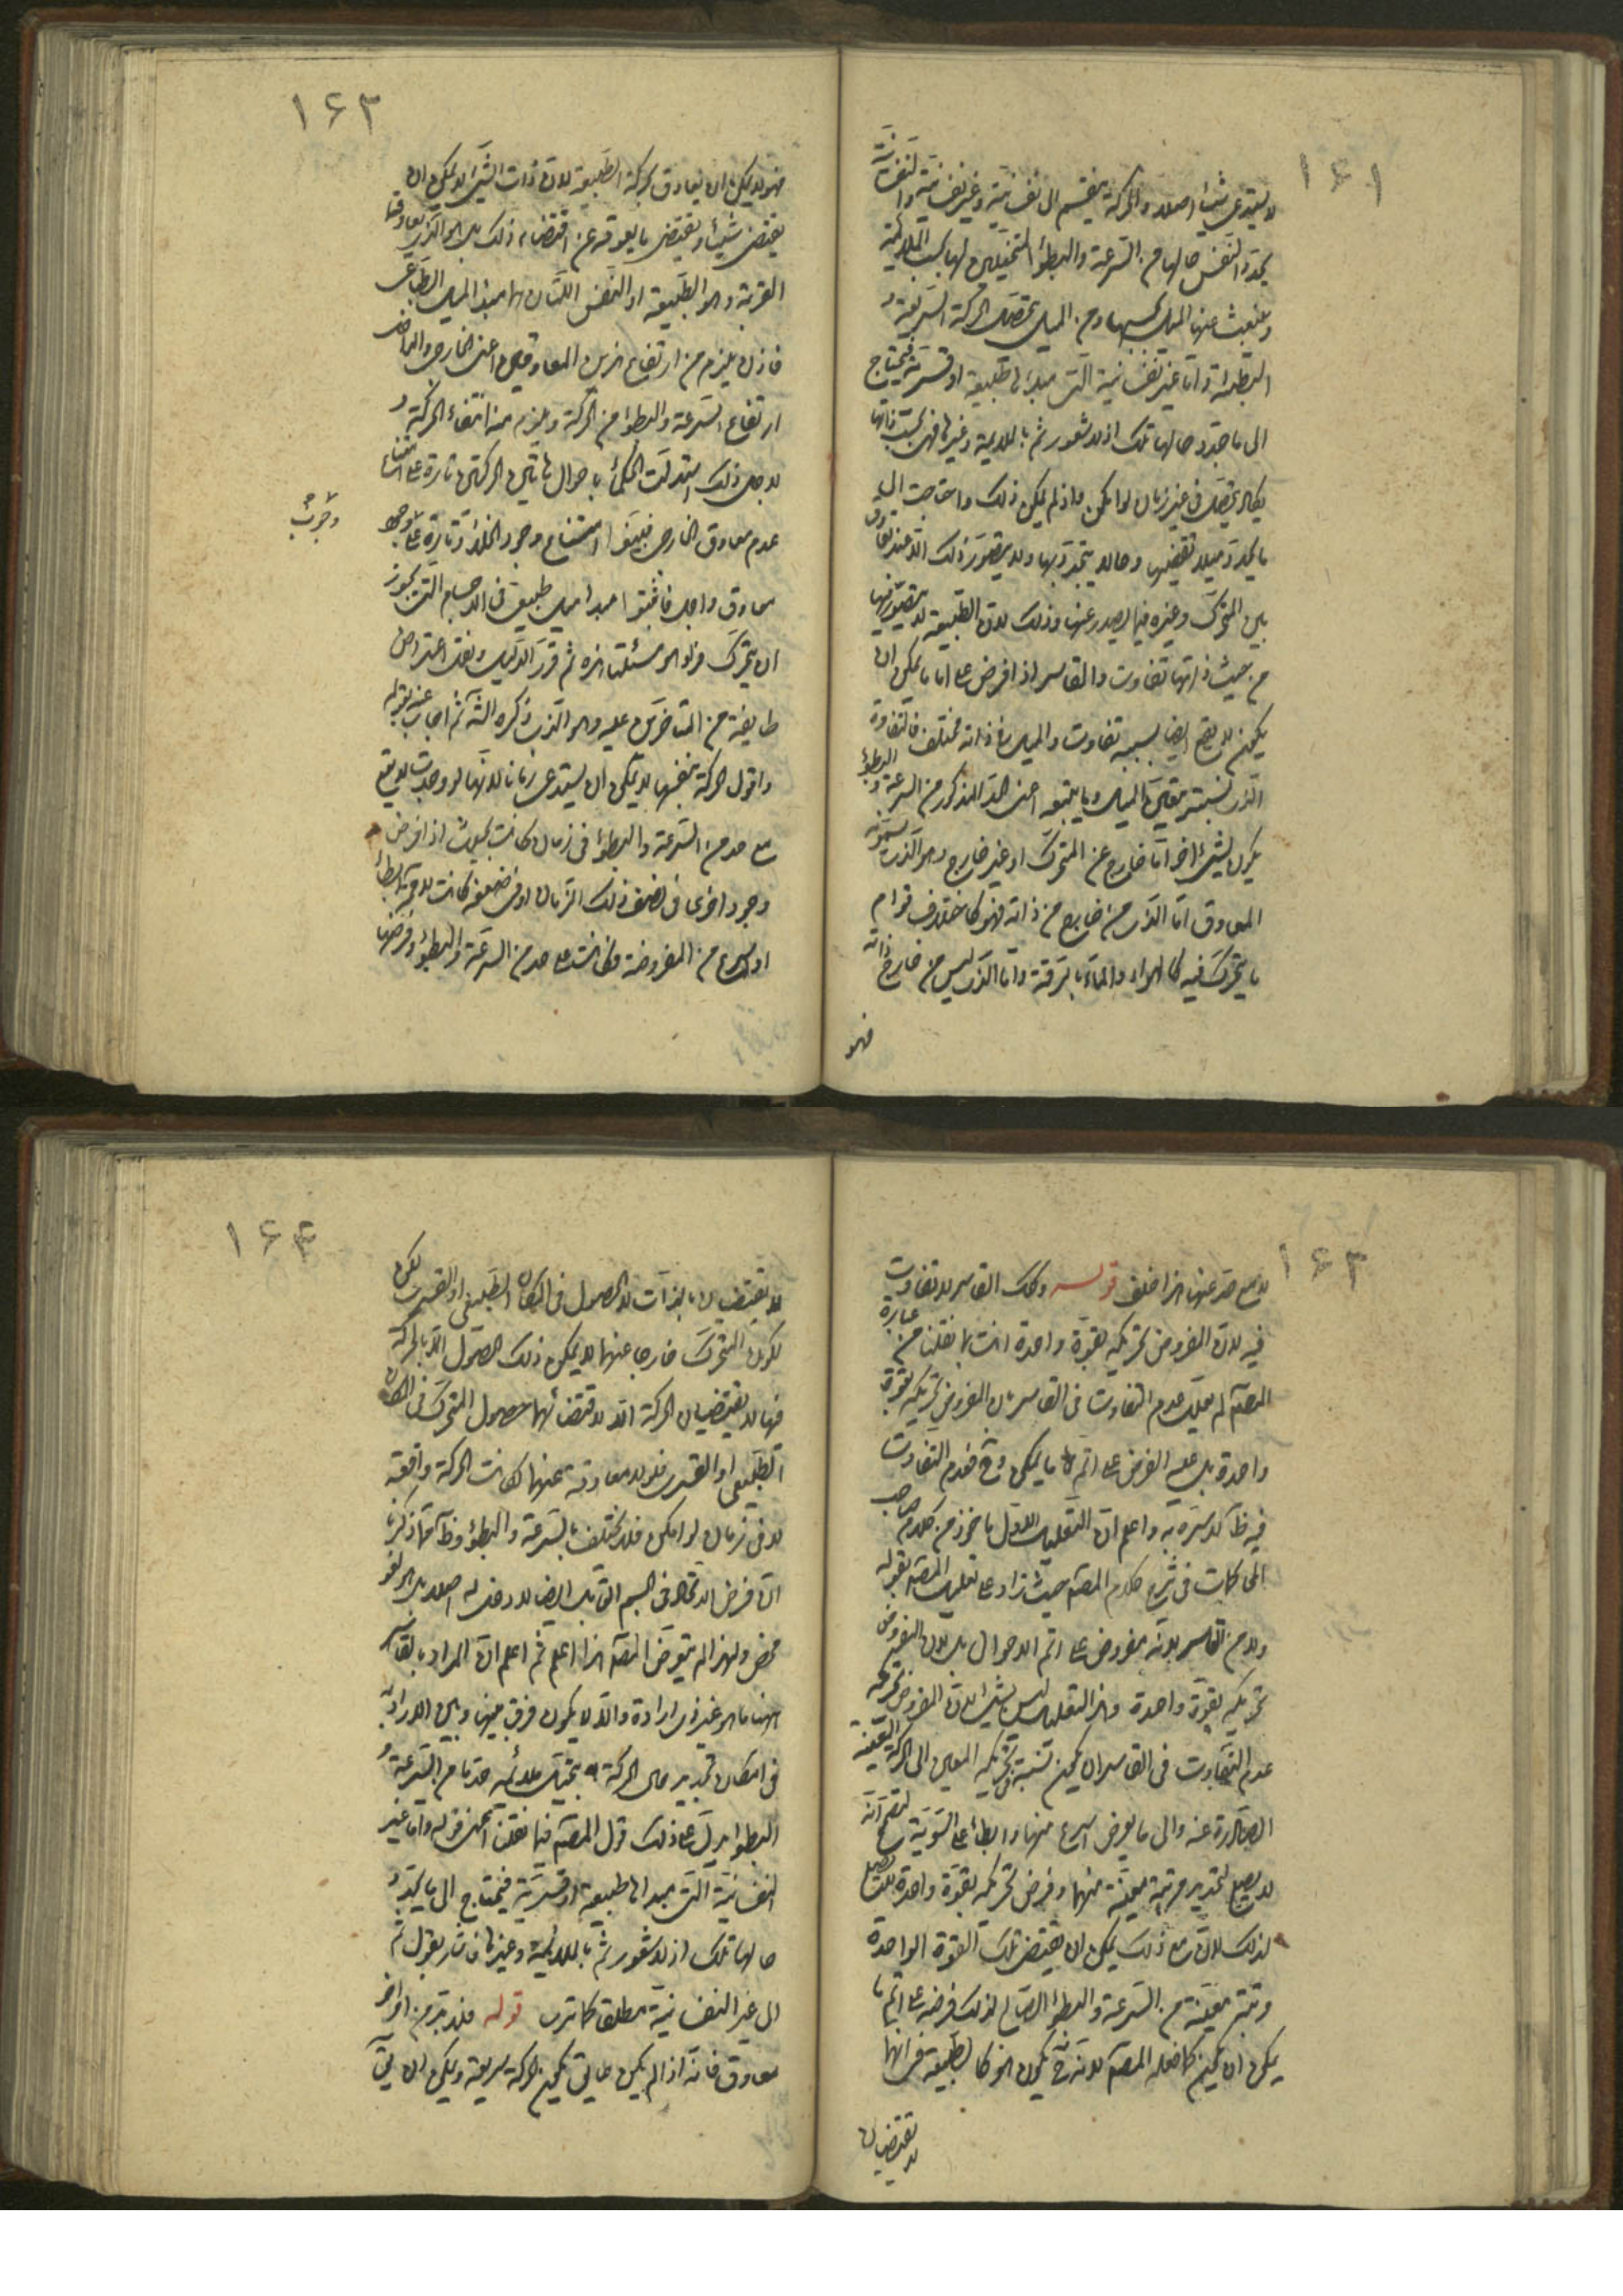 ١۶١
لا يستدعى شيئا اصلا والحركة ينقسم الى نفسانية وغير نفسانية والنفسانية
يحدد النفس حالها من السرعة والبطؤ المتخيلين لها بحسب الملايمة
وينبعث عنها الميل بحسبها ومن الميل يتحصل الحركة السريعة و
البطيئة واما غير نفسانية التى مبدئها طبيعة او قسرية فيحتاج
الى ما يحدد حالها تلك اذ لا شعور ثم بالملايمة وغيرها فهى بحسب ذاتها
يكاد يتحصل فى غير زمان لو امكن واذ لم يكن ذلك واحتاجت الى
ما يحدد ميلا يقتضيها وحالا يتحدد بها ولا يتصور ذلك الا عند تعاوق
بين المتحرك وغيره فيما يصدر عنها وذلك لان الطبيعة لا يتصور فيها
من حيث ذاتها تفاوت والقاسر اذا فرض على اتم ما يمكن ان
يكون لا يقع ايضا بسببه تفاوت والميل فى ذاته مختلف فالتفاوت
الذى بسببه يتعين الميل وما يتبعه اعنى الحد المذكور من السرعة والبطؤ
يكون بشئ اخر اما خارج عن المتحرك او غير خارج وهو الذى يسمونه
المعاوق اما الذى من خارج من ذاته فهو كاختلاف قوام
ما يتحرك فيه كالهواء والماء بالرقة واما الذى ليس من خارج ذاته
فهو
١۶٢
فهو لا يمكن ان يعاوق الحركة الطبيعية لان ذات الشئ لا يمكن ان
يقتضى شيئا ويقتضى ما يعوقه عن اقتضاء ذلك بل هو الذى يعاوق
القسرية وهو الطبيعة او النفس اللتان هما مبدأ الميل الطباعى
فاذن يلزم من ارتفاع هذين المعاوقين اعنى الخارجى والداخلى
ارتفاع السرعة والبطؤ من الحركة ويلزم منه انتفاء الحركة و
لاجل ذلك استدلت الحكماء باحوال هاتين الحركتين تارة على امتناع
عدم معاوق الخارجى فبينوا امتناع وجود الخلاء وتارة على وجوب
معاوق داخلى فاثبتوا مبدأ ميل طبيعى فى الاجسام التى يجوز
ان يتحرك قسرا وهو مسئلتنا هذه ثم قرر الدليل ونقل اعتراض
طايفة من المتاخرين عليه وهو الذى ذكره الشارح ثم اجاب عنه بقوله
واقول الحركة بنفسها لا يمكن ان يستدعى زمانا لانها لو وجدت لا
مع حد من السرعة والبطؤ فى زمان كانت بحيث اذا فرض
وجود اخرى فى نصف ذلك الزمان او فى ضعفه كانت لا محالة ابطأ
او اسرع من المفروضة فكانت على حد من السرعة والبطؤ وفرضها
وجوب
١۶٣
لا مع حد عنها هذا خلف قوله وكذا القاسر لا تفاوت
فيه لان المفروض تحريكه بقوة واحدة انت بما نقلنا من عبارة
المصنف لم يعلل عدم التفاوت فى القاسر بان المفروض تحريكه بقوة
واحدة بل على الفرض على اتم ما يمكن وح فعدم التفاوت
فيه ظاهر لا سترة به واعلم ان التعليل الاول ماخوذ من كلام صاحب
المحاكمات فى شرح كلام المصنف حيث زاد على تعليل المصنف بقوله
ولا من القاسر لانه مفروض على اتم الاحوال بل لان المفروض
تحريكه بقوة واحدة وهذا التعليل ليس بشئ لان المفروض تحريكه
عدم التفاوت فى القاسر ان يكون نسبة تحريكه المعين الى الحركة المعينة
الصادرة عنه والى ما يعرض اسرع منها وابطأ على السوية ليصح انه
لا يصلح لتحديد مرتبة معينة منهما وفرض تحريكه بقوة واحدة لا يصلح
لذلك لان مع ذلك يمكن ان يقتضى تلك القوة الواحدة
مرتبة معينة من السرعة والبطؤ الصالح لذلك فرضه على اتم ما
يمكن ان يكون كما فعله المصنف لانه ح يكون هو كالطبيعة فى انها
لا يقتضيان
١۶۴
لا يقتضيان بالذات الا الحصول فى المكان الطبيعى او القسرى لكن
لكون المتحرك خارجا عنهما لا يمكن ذلك الحصول الا بالحركة
فهما لا يقتضيان الحركة الا لاقتضائهما حصول المتحرك فى المكان
الطبيعى او القسرى فلو لا معاوقة عنهما لكانت الحركة واقعة
لا فى زمان لو امكن فلا يختلف بالسرعة والبطؤ وظاهر مما ذكرنا
ان فرض الاتحاد فى الجسم القابل ايضا لا دخل له اصلا بل هو لغو
محض ولهذا لم يتعرض المصنف هذا اعلم ثم اعلم ان المراد بالقاسر
ههنا ما هو غير ذى ارادة والا لا يكون فرق بينها وبين الارادية
فى امكان تحديد حال الحركة بتخيل ملائمة حد ما من السرعة و
البطؤ يدل على ذلك قول المصنف فيما نقلنا عنه وهو قوله واما غير
النفسانية التى مبدأها طبيعة او قسرية فيحتاج الى ما يحدد
حالها تلك اذ لا شعور ثم بالملايمة وغيرها فاشار بقوله ثم
الى غير النفسانية مطلقا كما ترى قوله فلا بد من امر اخر
معاوق فانه اذا لم يكن عايق يكون الحركة سريعة ويمكن ان يق